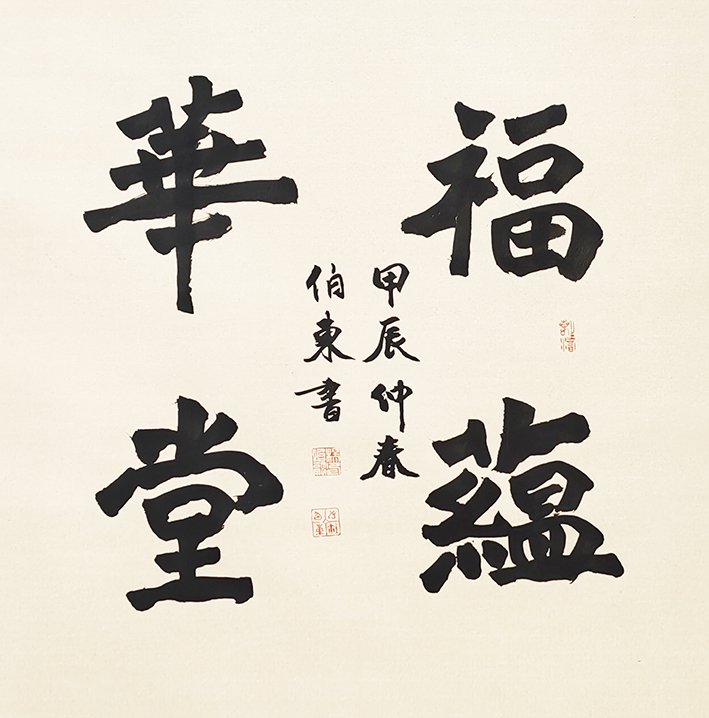 福蘊
華堂
甲辰仲春
伯東書